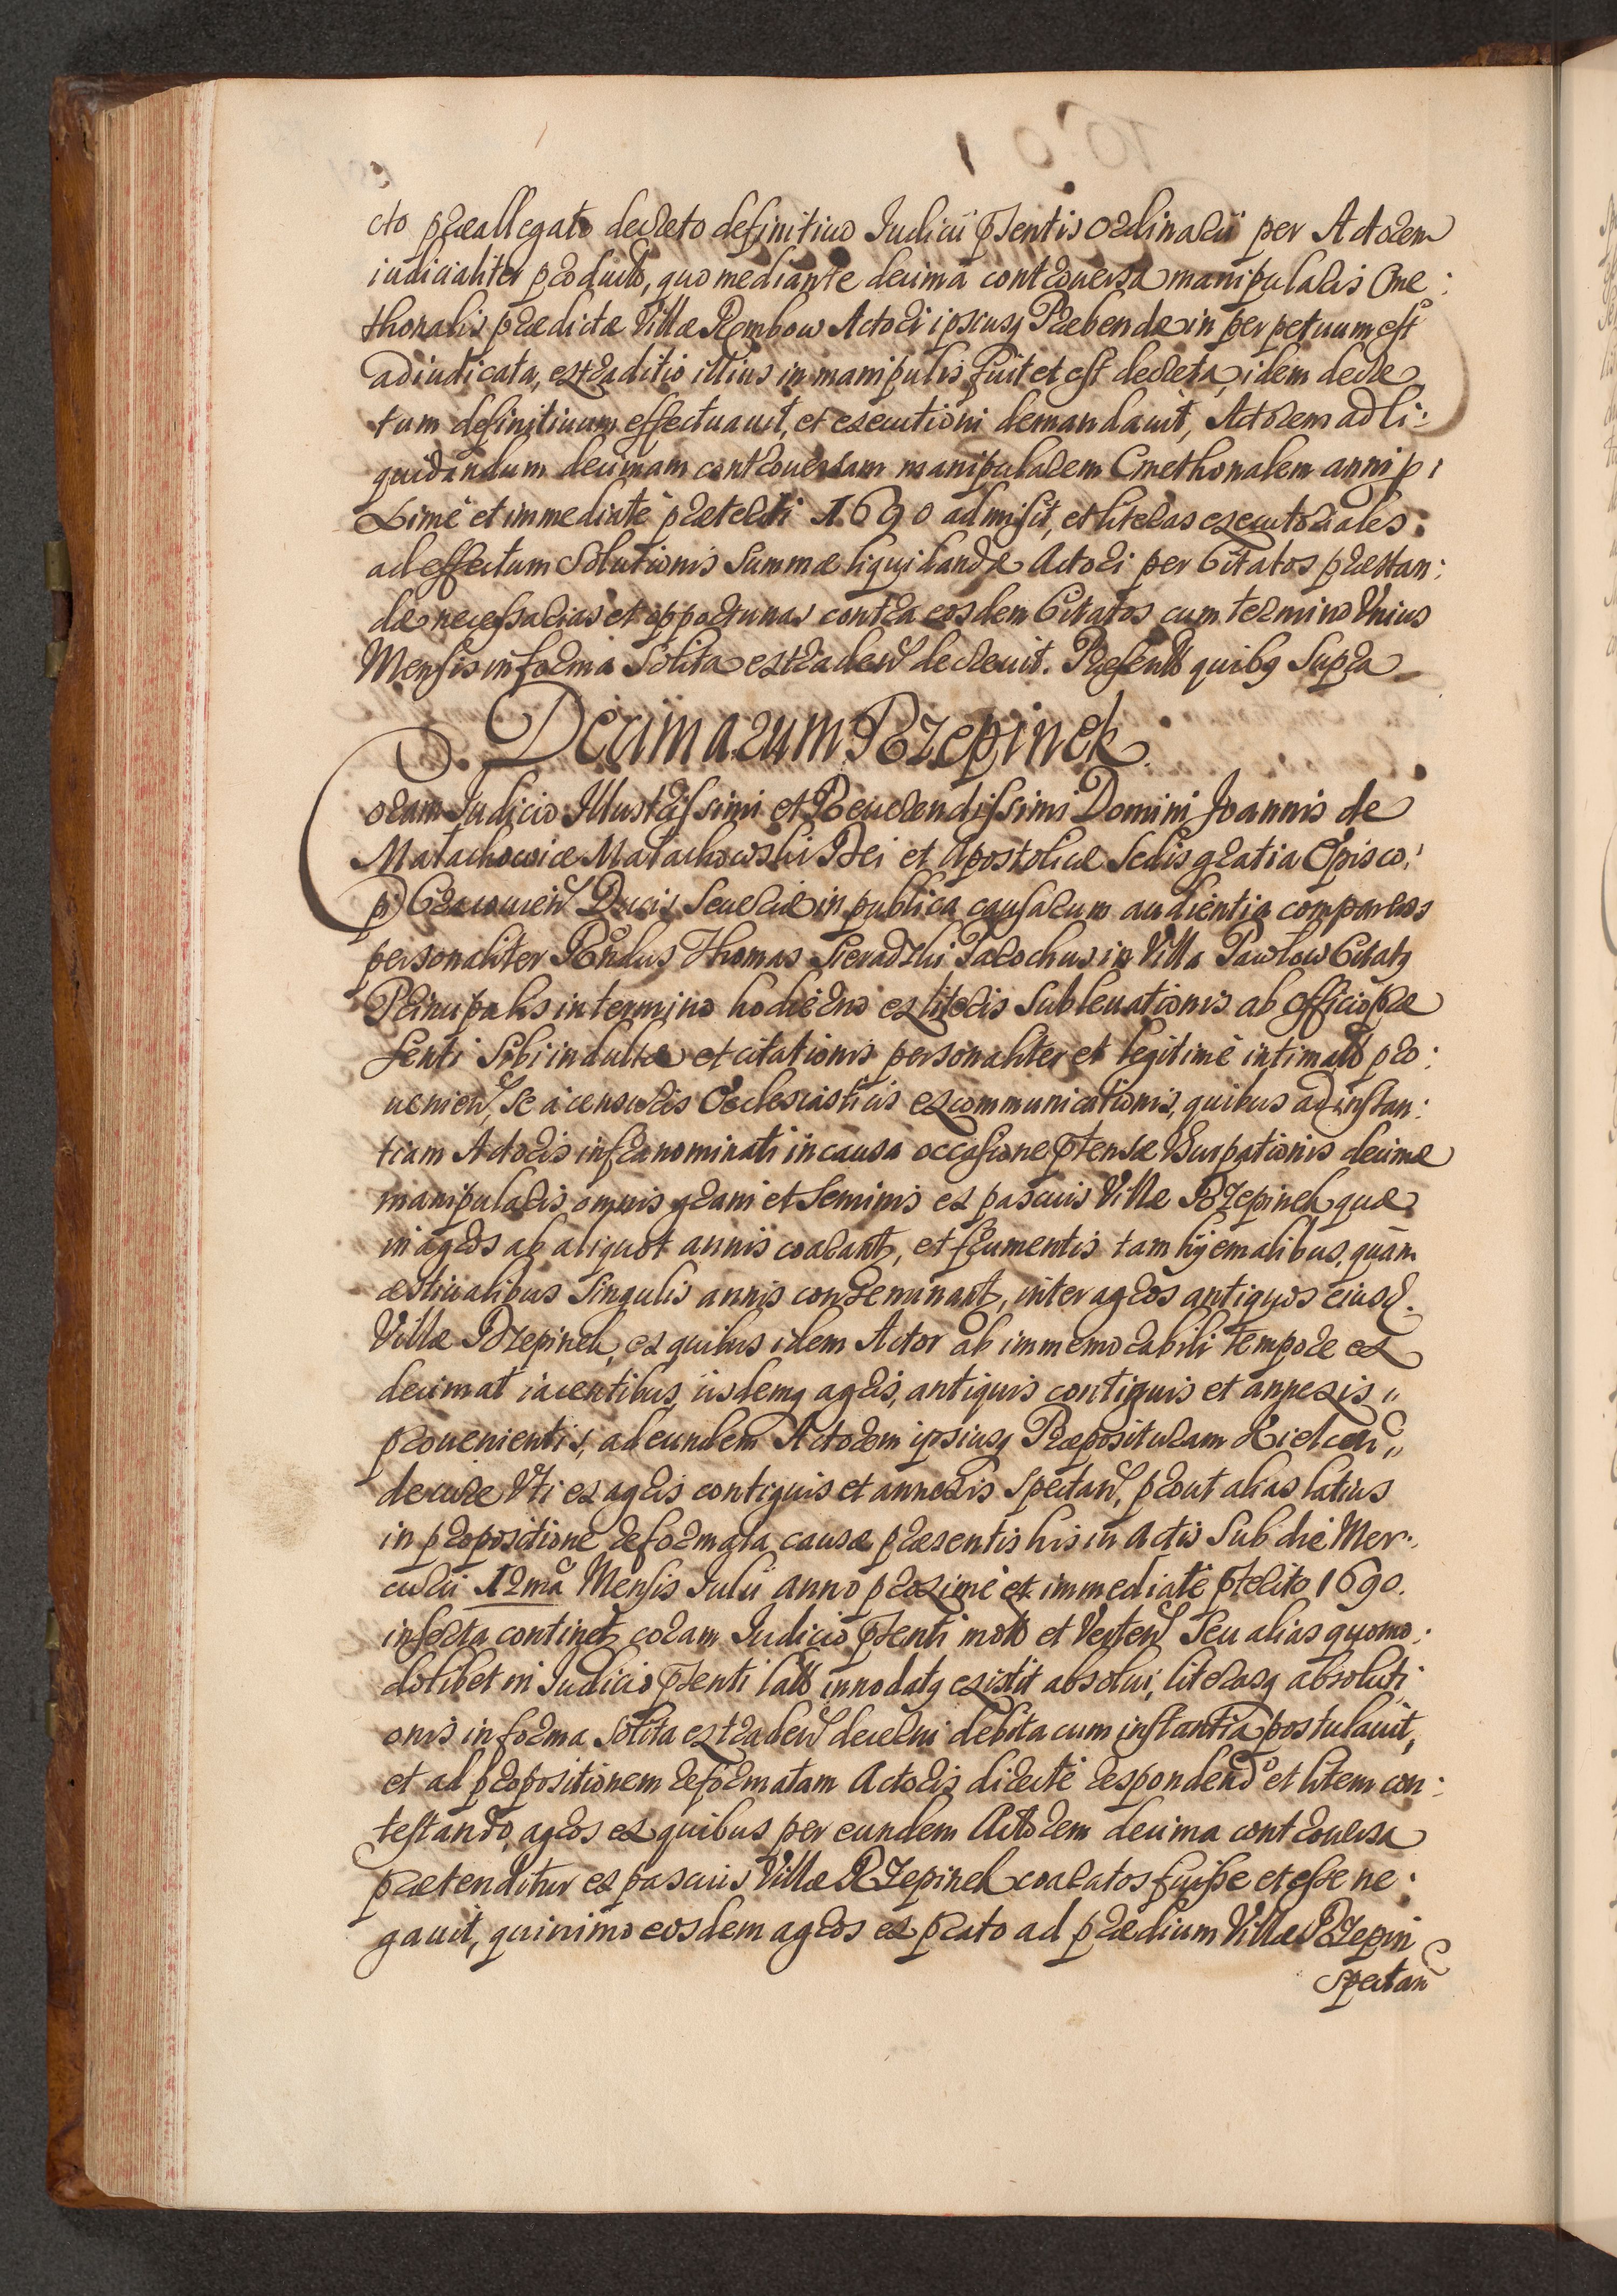 cto præallegato decreto definitiuo Iudicii pñtis Ordinarii per Actorem
iudicialiter producto, quo mediante decima controuersa manipularis Cme:
thonalis prædictæ Villæ Rembow Actori ipsiusq Præbendæ in perpetuum est
adiudicata, extraditio illius in manipulis fuit et est decreta, idem decre
tum definitiuum effectuauit, et executioni demandauit, Actorem ad li:
quidandum decimam controuersam manipularem Cmethonalem anni p:
ximè et immediatè præteriti 1690 admisit, et literas executoriales
ad effectum Solutionis Summæ liquidandæ Actori per Citatos præstan:
dæ necessarias et opportunas contra eosdem Citatos cum termino Vnius
Mensis in forma Solita extraden decreuit. Præsentib quibq Supra
Decimarum Rzepinek.
Coram Iudicio Illustrissimi et Reuerendissimi Domini Joannis de
Małachowice Małachowski Dei et Apostolicæ Sedis gratia Episco:
pi Cracouien Ducis Seueriæ in publica causarum audientia comparens
personaliter Rndus Thomas Sieradzki Parochus in Villa Pawłow Citatq
Principalis in termino hodierno ex literis Subleuationis ab officio præ
senti Sibi indultæ et citationis personaliter et legitimè intimatæ pro:
uenien, Se a censuris Ecclesiasticis excommunicationis, quibus ad instan:
tiam Actoris infranominati in causa occasione ptensæ Vsurpationis decimæ
manipularis omnis grani et Seminis ex pascuis Villæ Rzepinek quæ
in agros ab aliquot annis coarant, et frumentis tam hyemalibus, quàm
æstiualibus Singulis annis conseminant, inter agros antiquos eiusd.
Villæ Rzepinek, ex quibus idem Actor ab immemorabili tempore ex
decimat iacentibus, iisdemq agris, antiquis contiguis et annexis
prouenientis, ad eundem Actorem ipsiusq Præposituram Kielcen
de iure Vti ex agris contiguis et annexis Spectan, prout alias latius
in propositione reformata causæ præsentis his in Actis Sub die Mer:
curii 12ma Mensis Iulii anno proximè et immediatè pterito 1690.
inserta continet, coram Iudicio pñti moto et Verten Seu alias quomo:
dolibet in Iudicio pñti latis innodatq existit absolui, literasq absoluti
onis in forma Solita extraden decerni debita cum instantia postulauit,
et ad propositionem reformatam Actoris directè respondendo et litem con:
testando, agros ex quibus per eundem Actorem decima controuersa
prætenditur ex pascuis Villæ Rzepinek coaratos fuisse et esse ne:
gauit, quinimo eosdem agros ex prato ad prædium Villæ Rzepin
Spectan